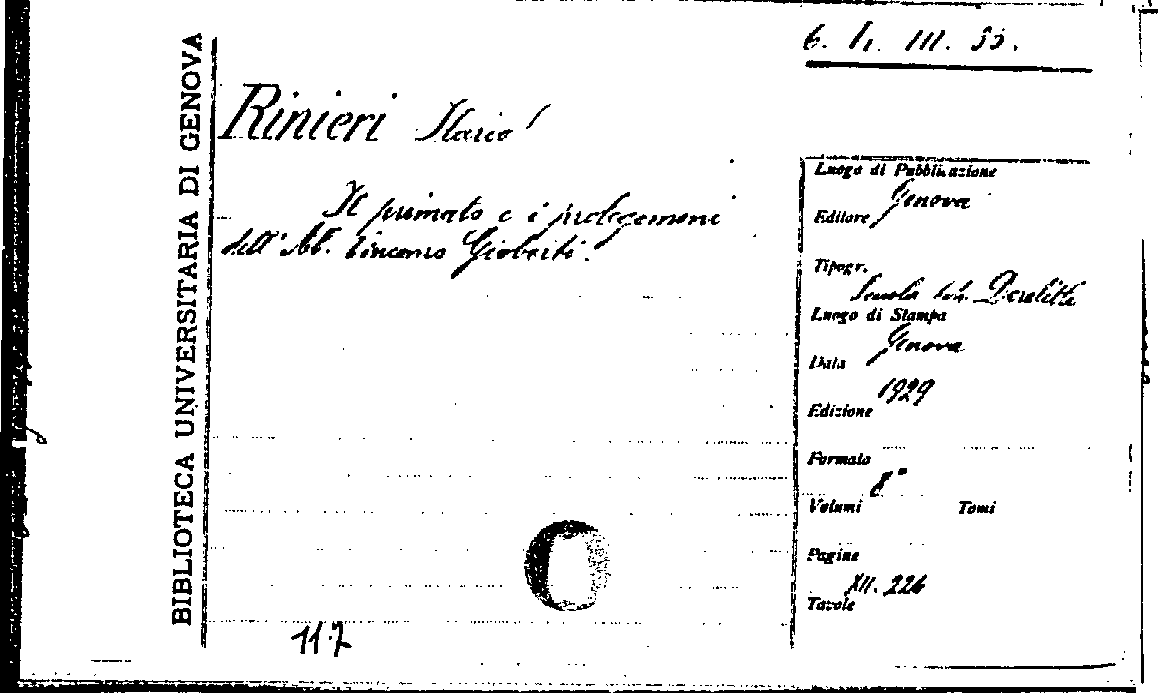 BIBLIOTECA UNIVERSITARIA DI GENOVA
6. h. III. 33.
Rinieri Ilario
Il primato e i prolegomeni
dell' Ab. Vincenzo Gioberti.
Luogo di Pubblicazione
Genova
Editore
Tipogr.
Scuola Derelitti
Luogo di Stampa
Genova
Data
1929
Edizione
Formato
8°
Volumi Tomi
Pagine
XII. 226
Tavole
117